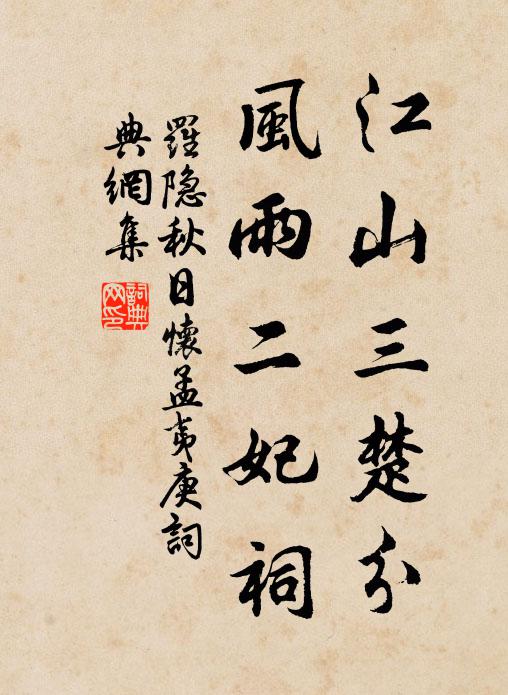 江山三楚分
風雨二妃祠
羅隐秋日懷孟夷庚詞
典網集
詞典
网印